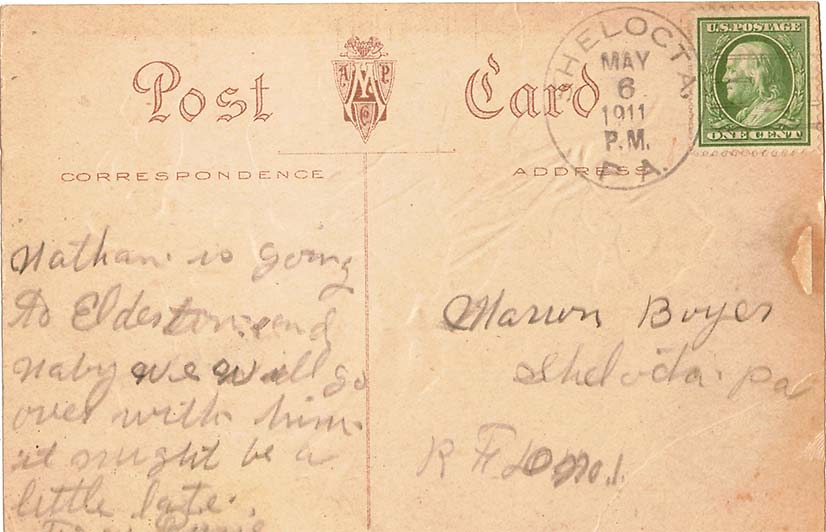 Post Card
A M P
Co
SHELOCTA,
MAY
6
1911
P.M.
PA.
U.S. POSTAGE
ONE CENT
CORRESPONDENCE
ADDRESS
Nathan is going
to Elderton and
maby we will go
over with him
it might be a
little late.
From
Marion Boyer
Shelocta Pa
R F D No. 1